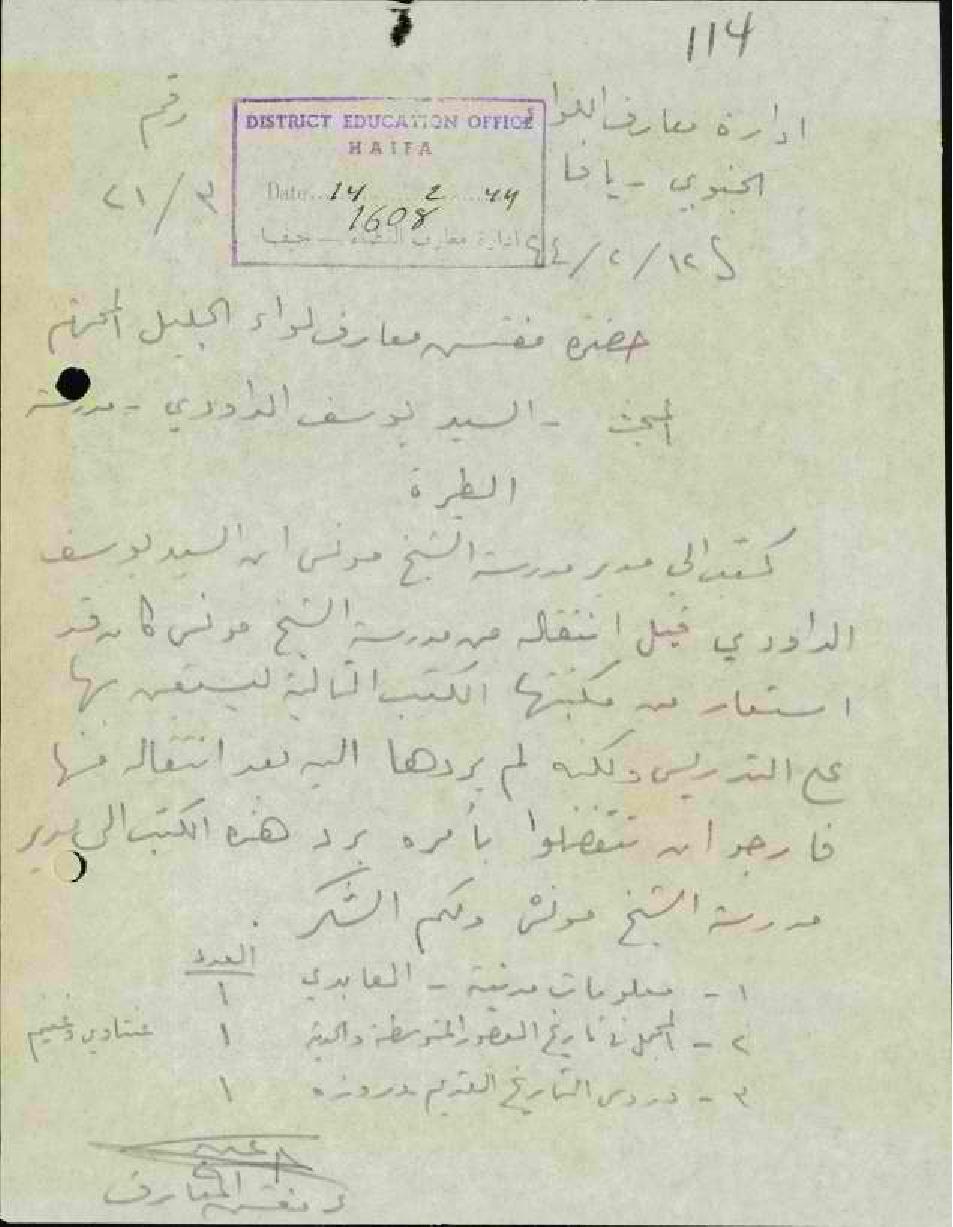 114
ادارة معارف اللواء
الجنوبي - يافا
رقم
٢١/٣
DISTRICT EDUCATION OFFICE
HAIFA
Date.. 14 2 44
1608
ادارة معارف اللواء - حيفا
١٢/٢/٤٤
حضرة مفتش معارف لواء الجليل المحترم
المبحث - السيد يوسف الداودي - مدرسة
الطيرة
كتب الي مدير مدرسة الشيخ مونس ان السيد يوسف
الداودي قبل انتقاله من مدرسة الشيخ مونس كان قد
استعار من مكتبتها الكتب التالية ليستعين بها
على التدريس ولكنه لم يردها اليه بعد انتقاله منها
فارجو ان تتفضلوا بأمره برد هذه الكتب الى مدير
مدرسة الشيخ مونس ولكم الشكر .
العدد
١ - معلومات مدنية - العابدي ١
٢ - المجمل في تاريخ العصور المتوسطة والحديثة ١ عنبتاوي وغنيم
٣ - دروس التاريخ القديم دروزه ١
مفتش المعارف